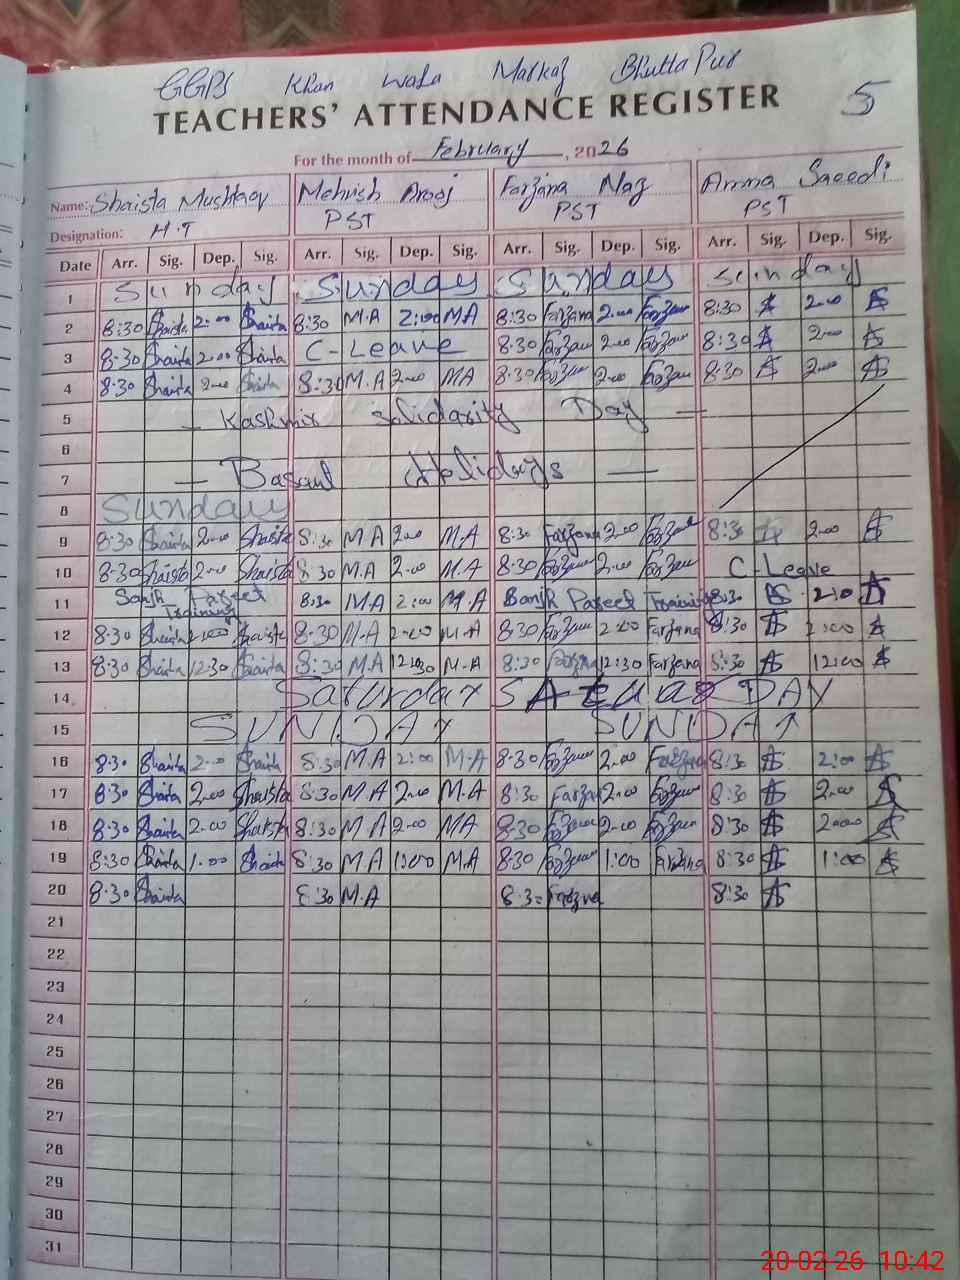 GGPS Khan Wala Markaz Bhutta Pur
TEACHERS' ATTENDANCE REGISTER 5
For the month of February, 2026
Name: Shaista Mushtaq Mehvish Arooj Farzana Naz Amma Saeedi
Designation: H.T PST PST PST
Date Arr. Sig. Dep. Sig. Arr. Sig. Dep. Sig. Arr. Sig. Dep. Sig. Arr. Sig. Dep. Sig.
1 Sunday Sunday Sunday Sunday
2 8:30 Shaista 2:00 Shaista 8:30 M.A 2:00 MA 8:30 Farzana 2:00 Farzana 8:30 2:00
3 8:30 Shaista 2:00 Shaista C-Leave 8:30 Farzana 2:00 Farzana 8:30 2:00
4 8:30 Shaista 2:00 Shaista 8:30 M.A 2:00 MA 8:30 Farzana 2:00 Farzana 8:30 2:00
5 - Kashmir Solidarity Day -
6
7 - Basant Holidays -
8 Sunday
9 8:30 Shaista 2:00 Shaista 8:30 M.A 2:00 M.A 8:30 Farzana 2:00 Farzana 8:30 2:00
10 8:30 Shaista 2:00 Shaista 8:30 M.A 2:00 M.A 8:30 Farzana 2:00 Farzana C-Leave
11 Training 8:30 M.A 2:00 M.A Training 8:30 2:0
12 8:30 Shaista 2:00 Shaista 8:30 M.A 2:00 M.A 8:30 Farzana 2:00 Farzana 8:30 2:00
13 8:30 Shaista 12:30 Shaista 8:30 M.A 12:30 M.A 8:30 Farzana 12:30 Farzana 8:30 12:00
14 Saturday SATURDAY
15 SUNDAY SUNDAY
16 8:30 Shaista 2:00 Shaista 8:30 M.A 2:00 M.A 8:30 Farzana 2:00 Farzana 8:30 2:00
17 8:30 Shaista 2:00 Shaista 8:30 M.A 2:00 M.A 8:30 Farzana 2:00 Farzana 8:30 2:00
18 8:30 Shaista 2:00 Shaista 8:30 M.A 2:00 MA 8:30 Farzana 2:00 Farzana 8:30 2:00
19 8:30 Shaista 1:00 Shaista 8:30 M.A 1:00 M.A 8:30 Farzana 1:00 Farzana 8:30 1:00
20 8:30 Shaista 8:30 M.A 8:30 Farzana 8:30
21
22
23
24
25
26
27
28
29
30
31
20-02-26 10:42